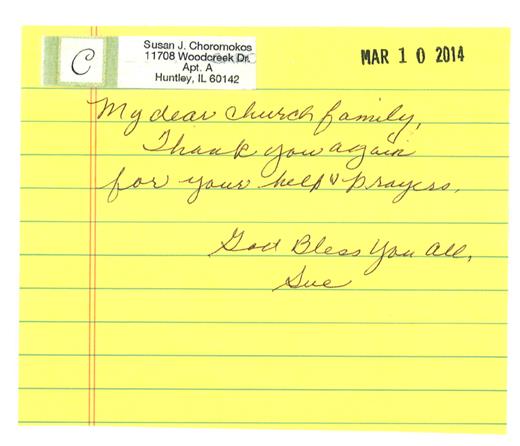 C
Susan J. Choromokos
11708 Woodcreek Dr.
Apt. A
Huntley, IL 60142
MAR 10 2014
My dear church family,
Thank you again
for your help & prayers.
God Bless You All,
Sue